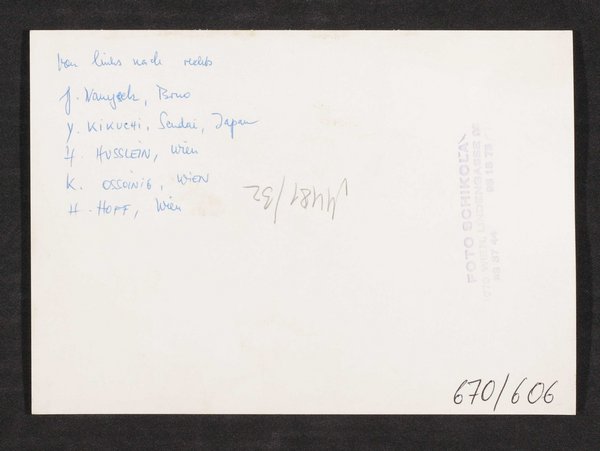 Von links nach rechts
J. Vanysek, Brno
Y. KIKUCHI, Sendai, Japan
H. HUSSLEIN, Wien
K. OSSOINIG, WIEN
H. HOFF, Wien
4481/32
FOTO SCHIKOLA
1070 WIEN, LINDENGASSE
670/606